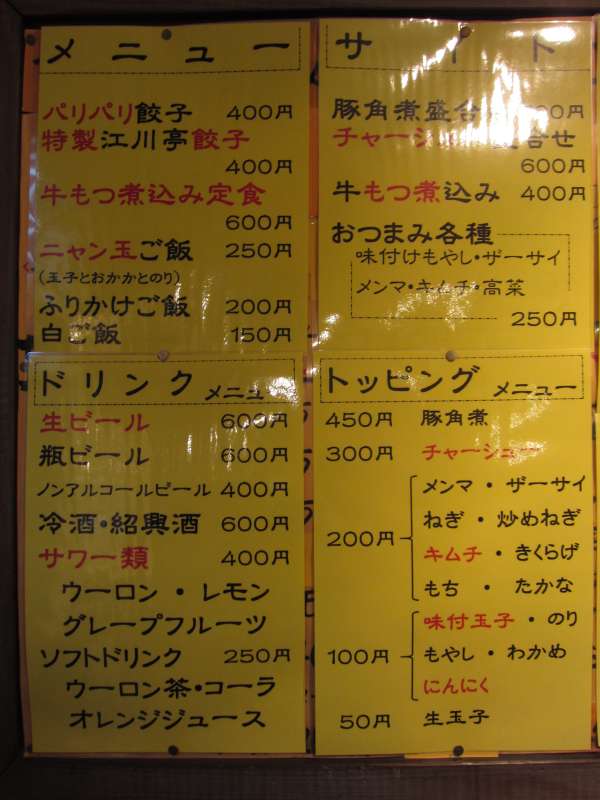 メニュー
パリパリ餃子 400円
特製江川亭餃子
400円
牛もつ煮込み定食
600円
ニャン玉ご飯 250円
(玉子とおかかとのり)
ふりかけご飯 200円
白ご飯 150円
サイド
豚角煮盛合
チャーシュー
600円
牛もつ煮込み 400円
おつまみ各種
味付けもやし・ザーサイ
メンマ・キムチ・高菜
250円
ドリンク メニュー
生ビール 600円
瓶ビール 600円
ノンアルコールビール 400円
冷酒・紹興酒 600円
サワー類 400円
ウーロン・レモン
グレープフルーツ
ソフトドリンク 250円
ウーロン茶・コーラ
オレンジジュース
トッピング メニュー
450円 豚角煮
300円 チャーシュー
メンマ・ザーサイ
ねぎ・炒めねぎ
200円
キムチ・きくらげ
もち・たかな
味付玉子・のり
100円 もやし・わかめ
にんにく
50円 生玉子